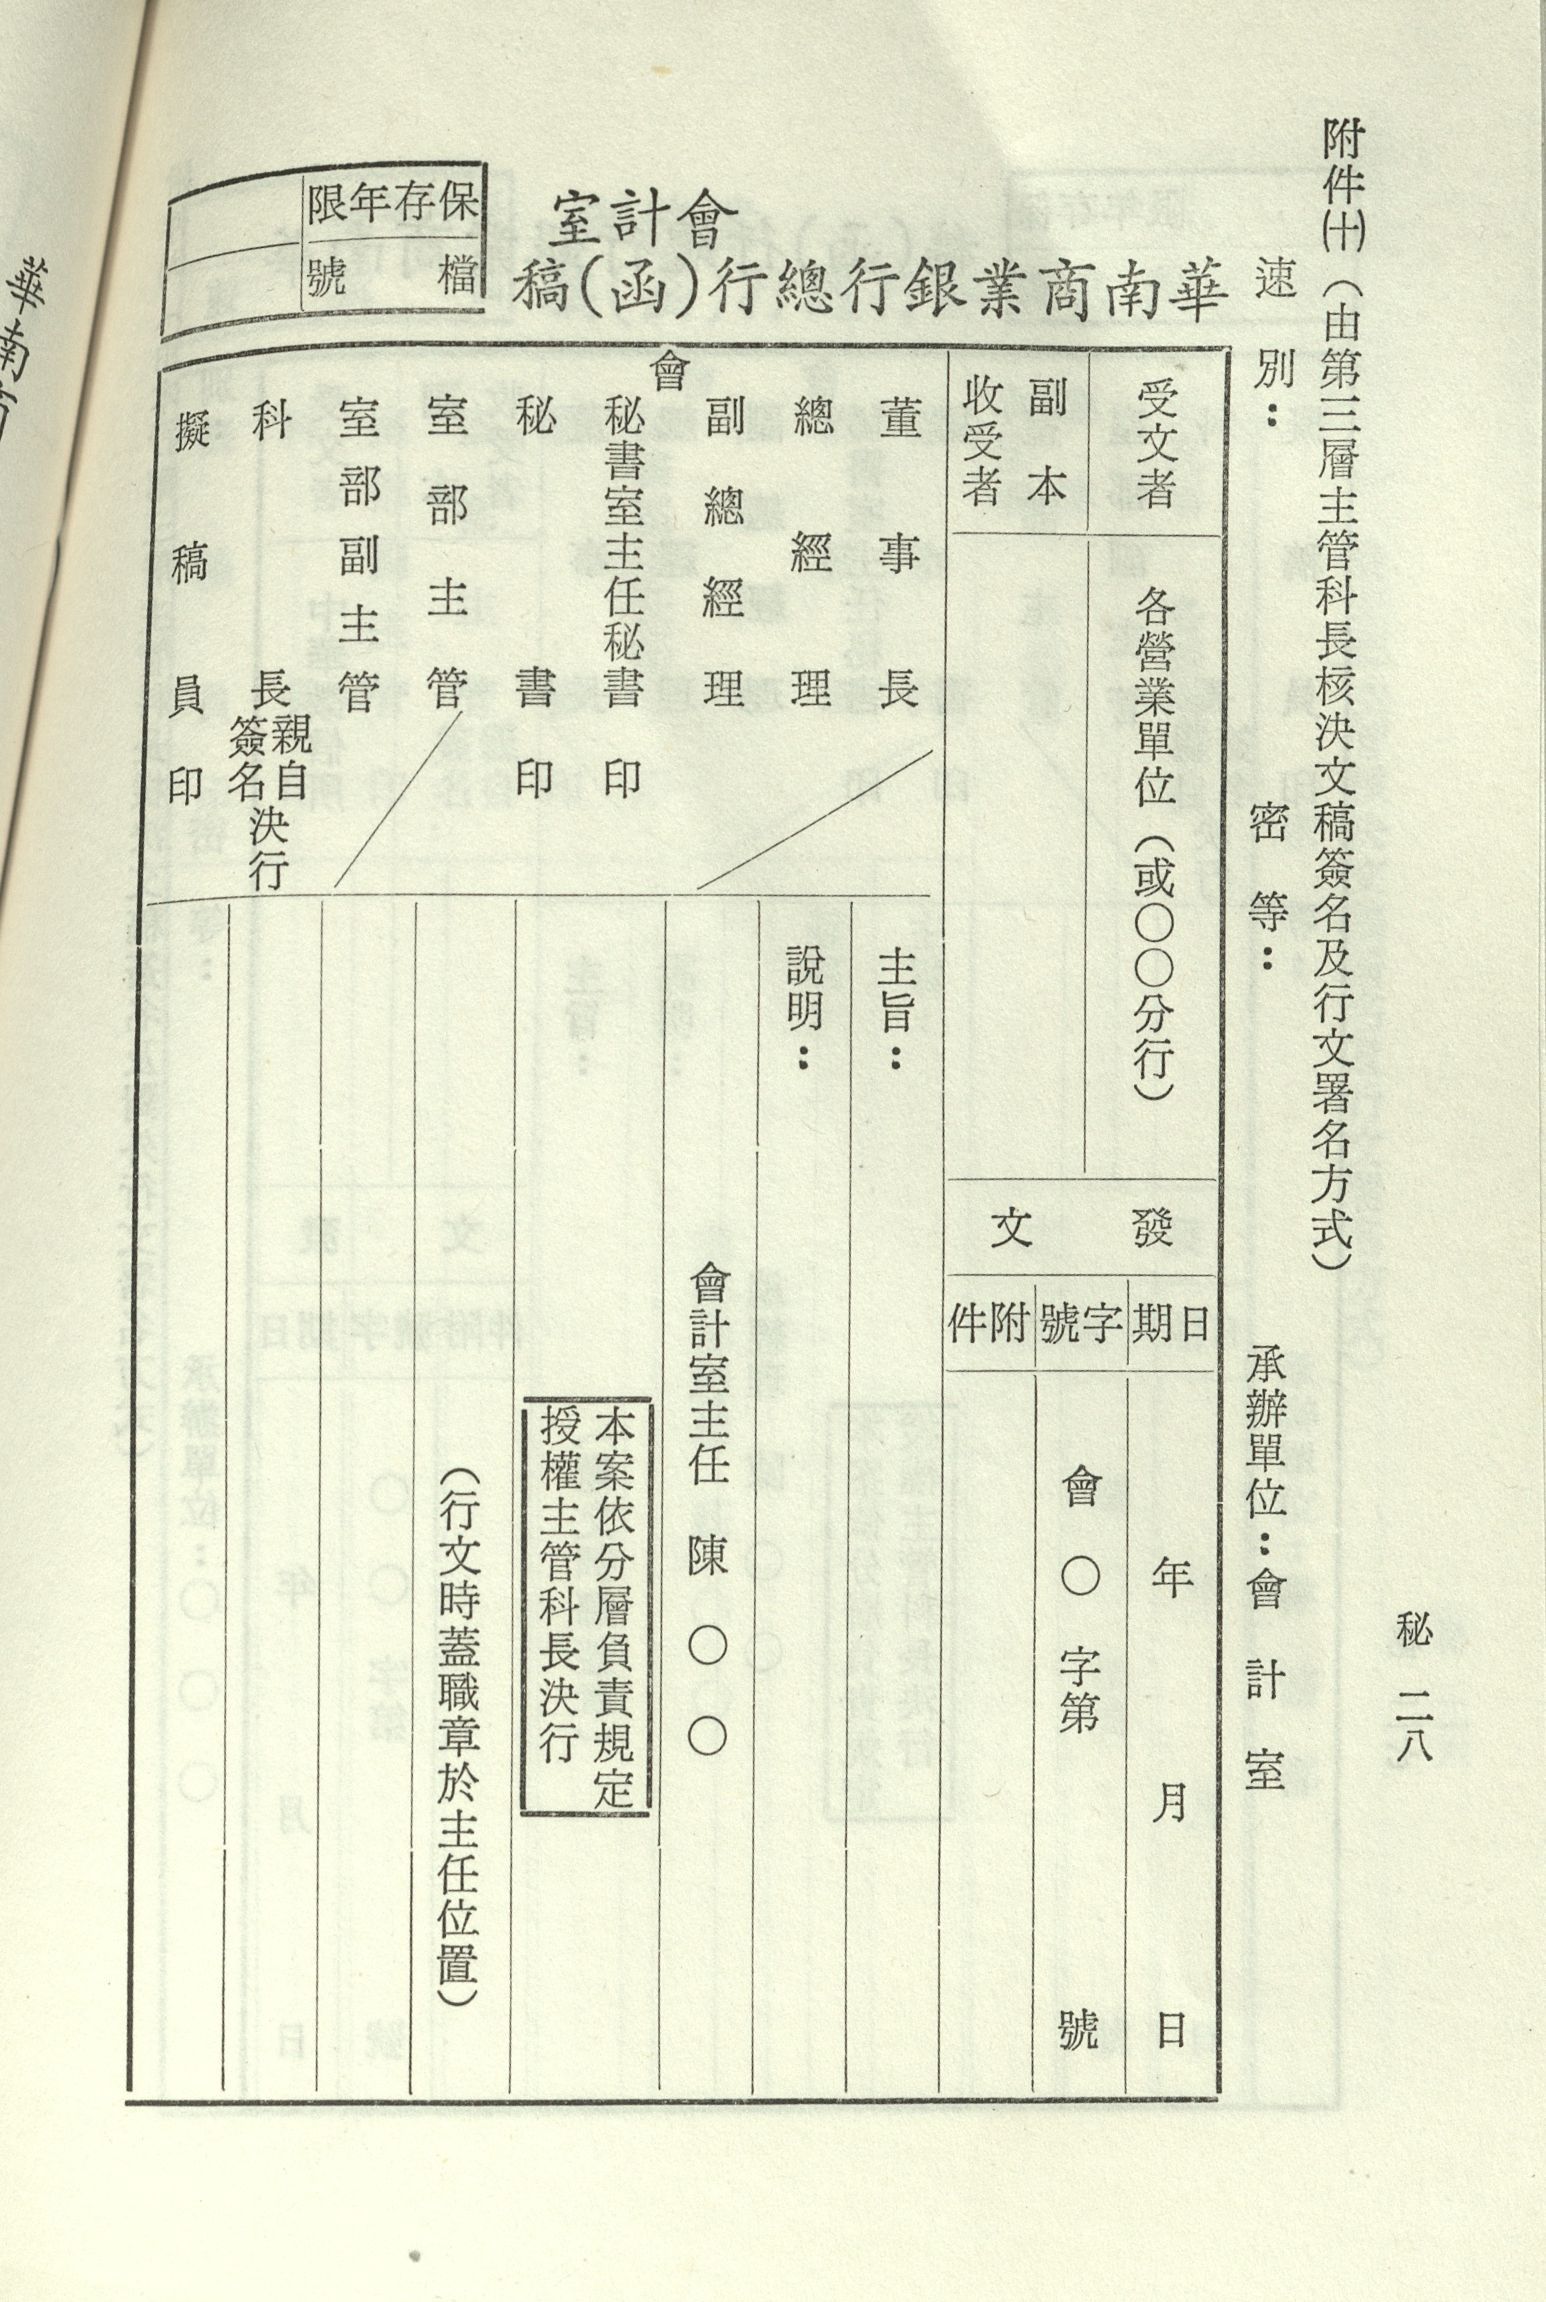 秘 二八
附件㈩（由第三層主管科長核決文稿簽名及行文署名方式）
速別：
密等：
承辦單位：會計室
會計室
華南商業銀行總行（函）稿
保存年限
檔號
受文者
各營業單位（或○○分行）
副本
收受者
發文
日期
年 月 日
字號
會○字第 號
附件
董事長
總經理
副總經理
會
秘書室主任秘書印
秘書印
室部主管
室部副主管
科長親自簽名決行
擬稿員印
主旨：
說明：
會計室主任 陳○○
本案依分層負責規定
授權主管科長決行
（行文時蓋職章於主任位置）
華南商